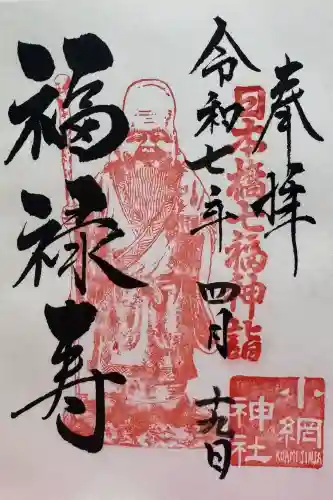 奉拝
日本橋七福神詣
令和七年四月十九日
福禄寿
小網
神社
KOAMIJINJA